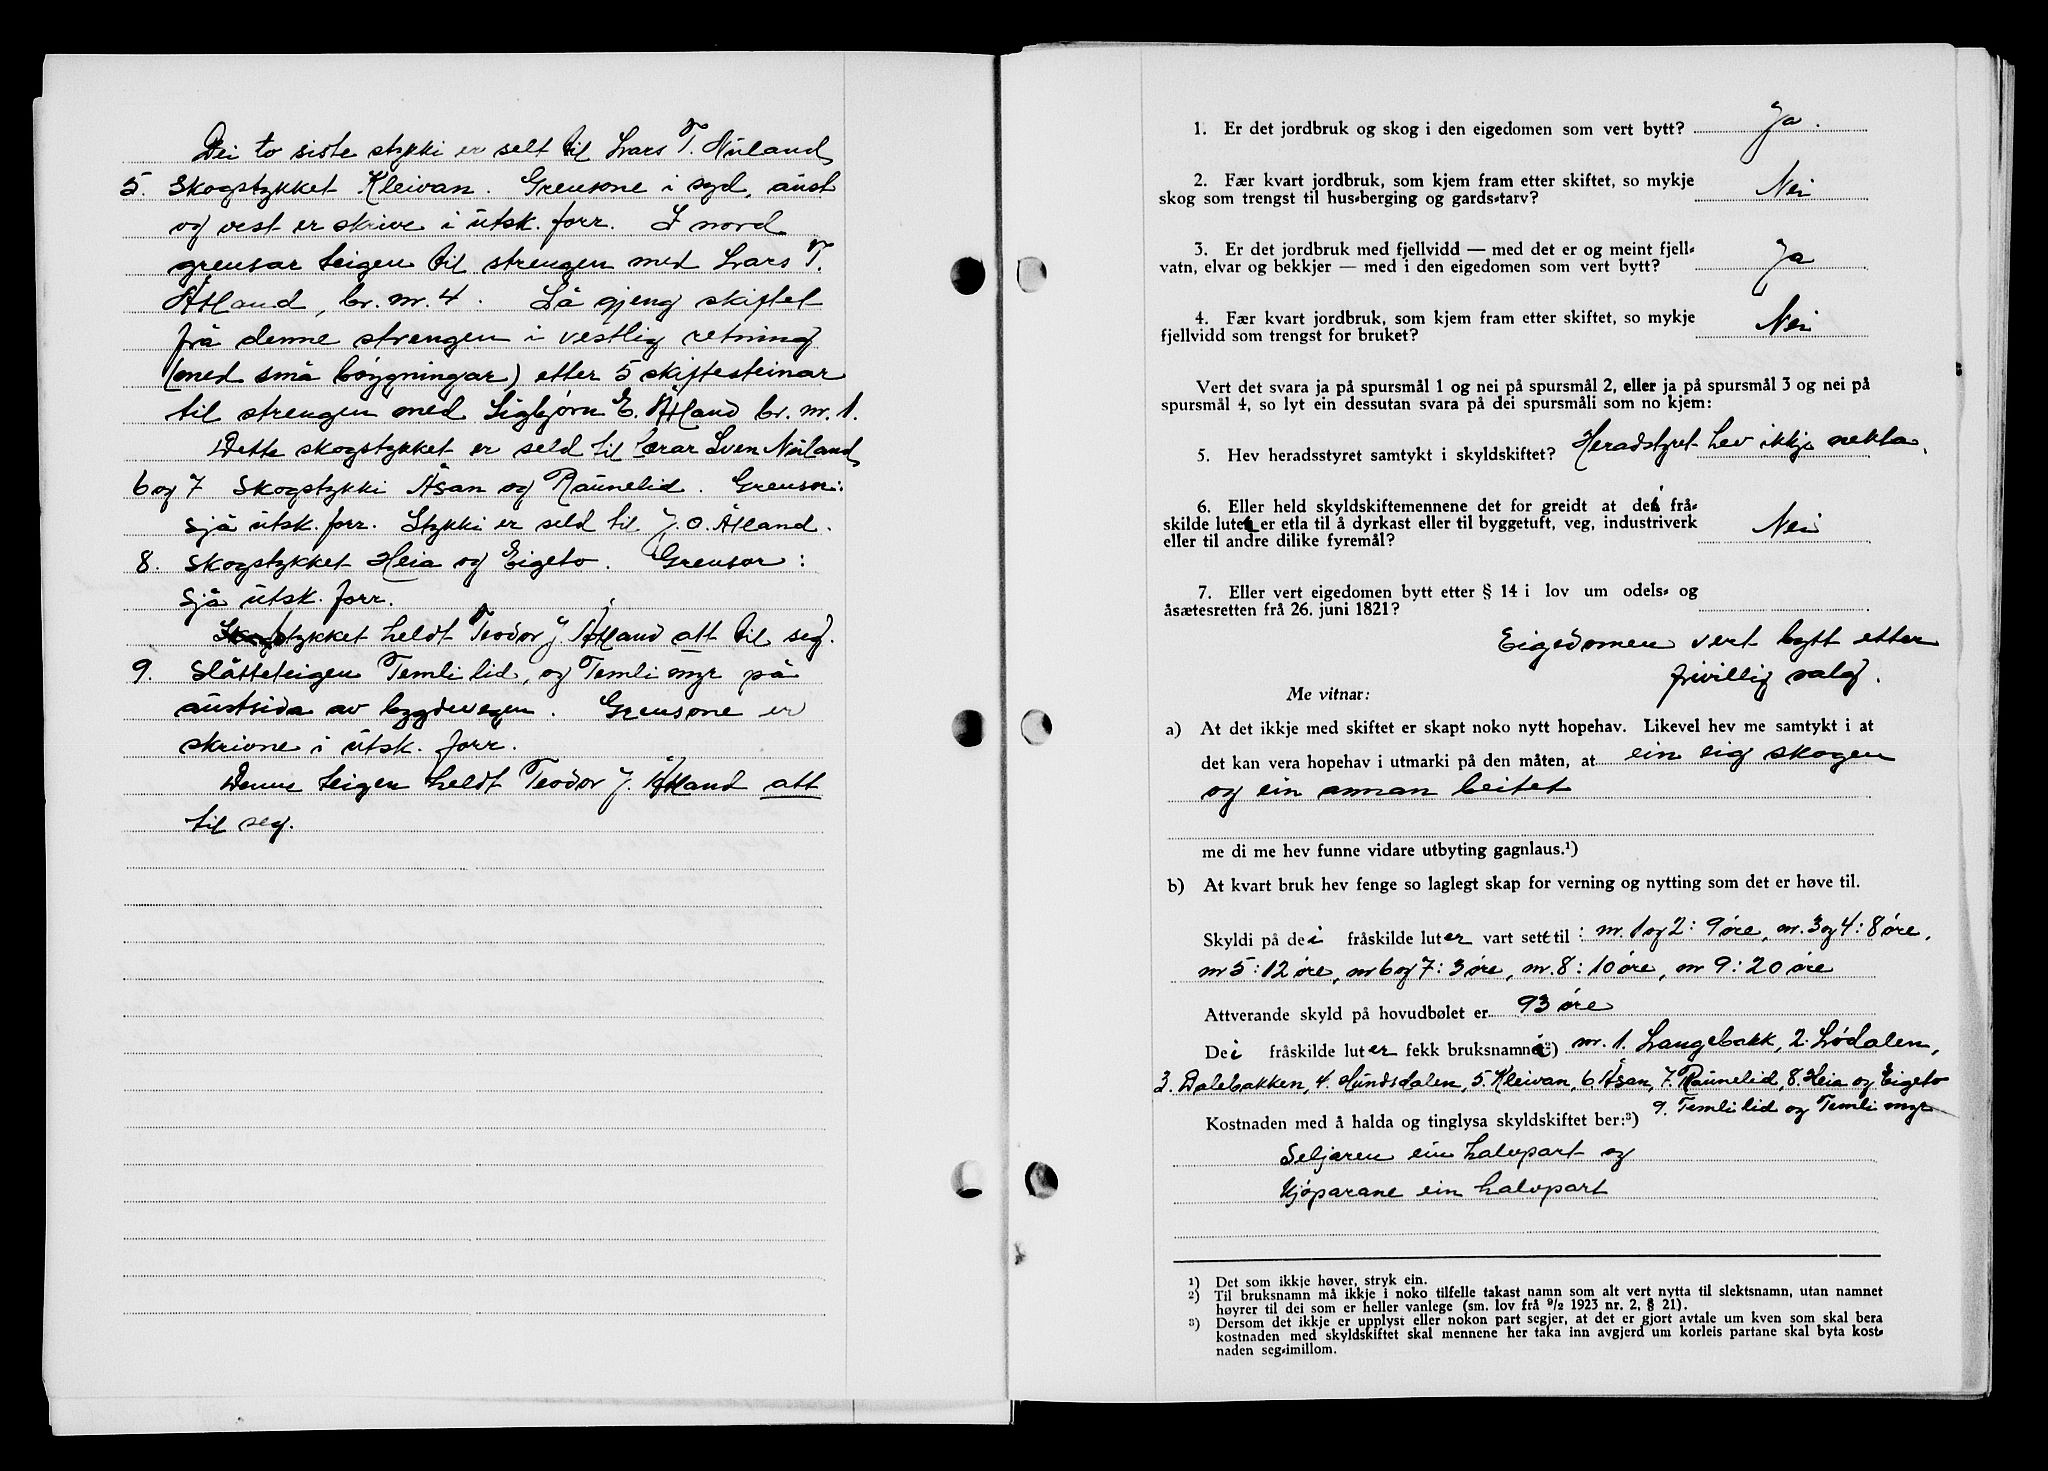 Dei to siste stykki er selt til Lars T. Nuland
5. Skogstykket Kleivan. Grensone i syd, aust
og vest er skrive i utsk. forr. I nord
grensar teigen til strengen med Lars T.
Åtland, br. nr. 4. Så gjeng skiftet
frå denne strengen i vestlig retning
(med små bøygningar) etter 5 skiftesteinar
til strengen med Sigbjørn E. Åtland br. nr. 1.
Dette skogstykket er seld til lærar Sven Nuland
6 og 7 Skogstykki Åsan og Raunelid. Grensor:
sjå utsk. forr. Stykki er seld til J. O. Åtland.
8. Skogstykket Heia og Eigeto. Grensor:
sjå utsk. forr.
Stykket heldt Teodor J. Åtland att til seg.
9. Slåtteteigen Temli lid, og Temli myr på
austsida av bygdevegen. Grensone er
skrivne i utsk. forr.
Denne teigen heldt Teodor J. Åtland att
til seg.
1. Er det jordbruk og skog i den eigedomen som vert bytt? Ja.
2. Fær kvart jordbruk, som kjem fram etter skiftet, so mykje
skog som trengst til hus-berging og gards-tarv? Nei
3. Er det jordbruk med fjellvidd — med det er og meint fjell-
vatn, elvar og bekkjer — med i den eigedomen som vert bytt? Ja
4. Fær kvart jordbruk, som kjem fram etter skiftet, so mykje
fjellvidd som trengst for bruket? Nei
Vert det svara ja på spursmål 1 og nei på spursmål 2, eller ja på spursmål 3 og nei på
spursmål 4, so lyt ein dessutan svara på dei spursmåli som no kjem:
5. Hev heradsstyret samtykt i skyldskiftet? Heradstyret hev ikkje nekta.
6. Eller held skyldskiftemennene det for greidt at dei frå-
skilde luter er etla til å dyrkast eller til byggetuft, veg, industriverk
eller til andre dilike fyremål? Nei
7. Eller vert eigedomen bytt etter § 14 i lov um odels- og
åsætesretten frå 26. juni 1821?
Eigedomen vert bytt etter
frivillig salg.
Me vitnar:
a) At det ikkje med skiftet er skapt noko nytt hopehav. Likevel hev me samtykt i at
det kan vera hopehav i utmarki på den måten, at ein eig skogen
og ein annan beitet
me di me hev funne vidare utbyting gagnlaus.¹)
b) At kvart bruk hev fenge so laglegt skap for verning og nytting som det er høve til.
Skyldi på dei fråskilde luter vart sett til: nr. 1 og 2: 9 øre, nr. 3 og 4: 8 øre,
nr 5: 12 øre, nr 6 og 7: 3 øre, nr. 8: 10 øre, nr 9: 20 øre
Attverande skyld på hovudbølet er 93 øre
Dei fråskilde luter fekk bruksnamni²) nr. 1. Langebakk, 2. Lødalen,
3. Dalebakken, 4. Hundsdalen, 5 Kleivan, 6. Åsan, 7. Raunelid, 8. Heia og Eigeto
9. Temli lid og Temli myr
Kostnaden med å halda og tinglysa skyldskiftet ber:³)
Seljaren ein halvpart og
Kjøparane ein halvpart
¹) Det som ikkje høver, stryk ein.
²) Til bruksnamn må ikkje i noko tilfelle takast namn som alt vert nytta til slektsnamn, utan namnet
høyrer til dei som er heller vanlege (sm. lov frå 9/2 1923 nr. 2, § 21).
³) Dersom det ikkje er upplyst eller nokon part segjer, at det er gjort avtale um kven som skal bera
kostnaden med skyldskiftet skal mennene her taka inn avgjerd um korleis partane skal byta kost-
naden seg-imillom.